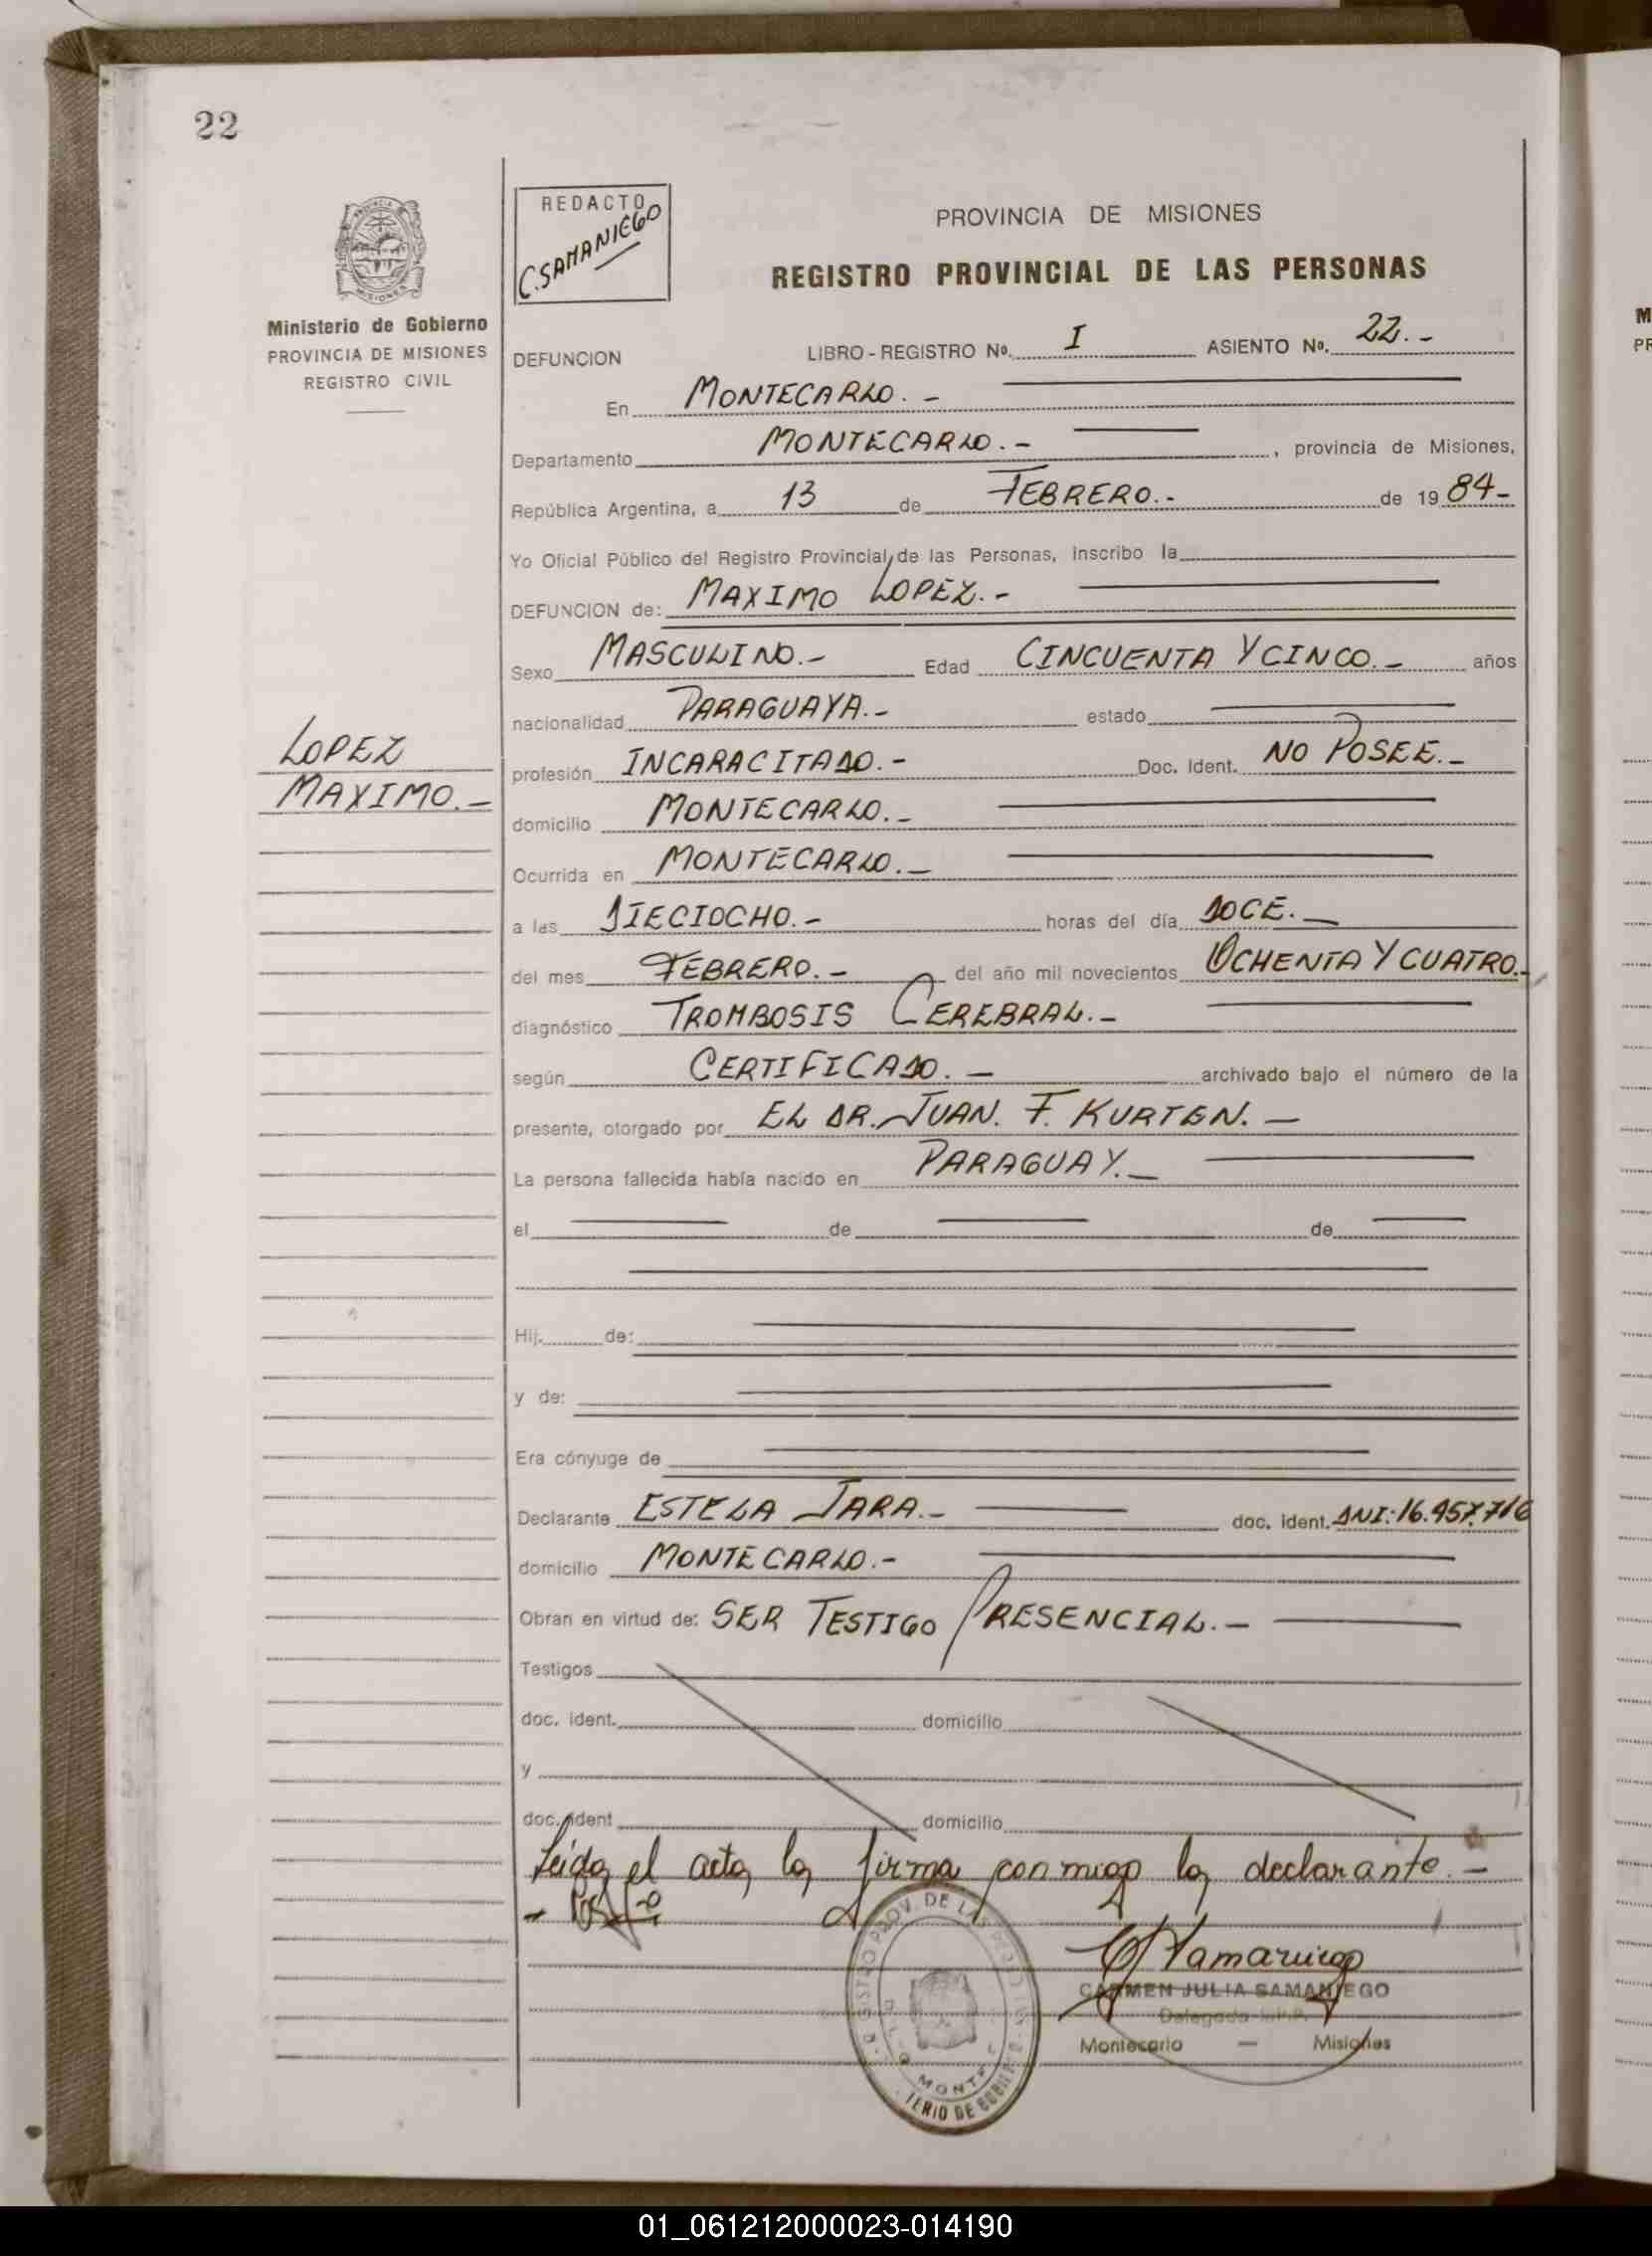 22
REDACTO
C. SAMANIEGO
PROVINCIA DE MISIONES
REGISTRO PROVINCIAL DE LAS PERSONAS
MISIONES
Ministerio de Gobierno
PROVINCIA DE MISIONES
REGISTRO CIVIL
DEFUNCION LIBRO - REGISTRO Nº. I ASIENTO Nº. 22.-
En MONTECARLO.-
Departamento MONTECARLO.- , provincia de Misiones,
República Argentina, a 13 de FEBRERO.- de 19 84-
Yo Oficial Público del Registro Provincial de las Personas, inscribo la
DEFUNCION de: MAXIMO LOPEZ.-
Sexo MASCULINO.- Edad CINCUENTA Y CINCO.- años
nacionalidad PARAGUAYA.- estado
LOPEZ
MAXIMO.-
profesión INCARACITADO.- Doc. Ident. NO POSEE.-
domicilio MONTECARLO.-
Ocurrida en MONTECARLO.-
a las DIECIOCHO.- horas del día DOCE.-
del mes FEBRERO.- del año mil novecientos OCHENTA Y CUATRO.-
diagnóstico TROMBOSIS CEREBRAL.-
según CERTIFICADO.- archivado bajo el número de la
presente, otorgado por EL DR. JUAN. F. KURTEN.-
La persona fallecida había nacido en PARAGUAY.-
el de de
Hij. de:
y de:
Era cónyuge de
Declarante ESTELA JARA.- doc. ident. DNI: 16.957.716
domicilio MONTECARLO.-
Obran en virtud de: SER TESTIGO PRESENCIAL.-
Testigos
doc. ident. domicilio
y
doc. ident domicilio
Leida el acta la firma conmigo la declarante.-
CSamaniego
CARMEN JULIA SAMANIEGO
Delegada
Montecarlo — Misiones
01_061212000023-014190